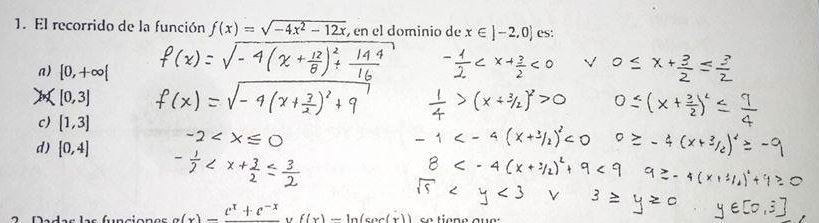 1. El recorrido de la función f(x) = √-4x² - 12x, en el dominio de x ∈ ]-2,0] es:
a) [0,+∞[
b) [0,3]
c) [1,3]
d) [0,4]
f(x) = √-4(x+12/8)²+ 144/16
f(x) = √-4(x+3/2)²+9
-2 < x ≤ 0
-1/2 < x+3/2 ≤ 3/2
-1/2 < x+3/2 < 0 ∨ 0 ≤ x+3/2 ≤ 3/2
1/4 > (x+3/2)² > 0 0 ≤ (x+3/2)² ≤ 9/4
-1 < -4(x+3/2)² < 0 0 ≥ -4(x+3/2)² ≥ -9
8 < -4(x+3/2)²+9 < 9 9 ≥ -4(x+3/2)²+9 ≥ 0
√8 < y < 3 ∨ 3 ≥ y ≥ 0 y ∈ [0,3]
2. Dadas las funciones g(x) = eˣ + e⁻ˣ y f(x) = ln(sec(x)) se tiene que: